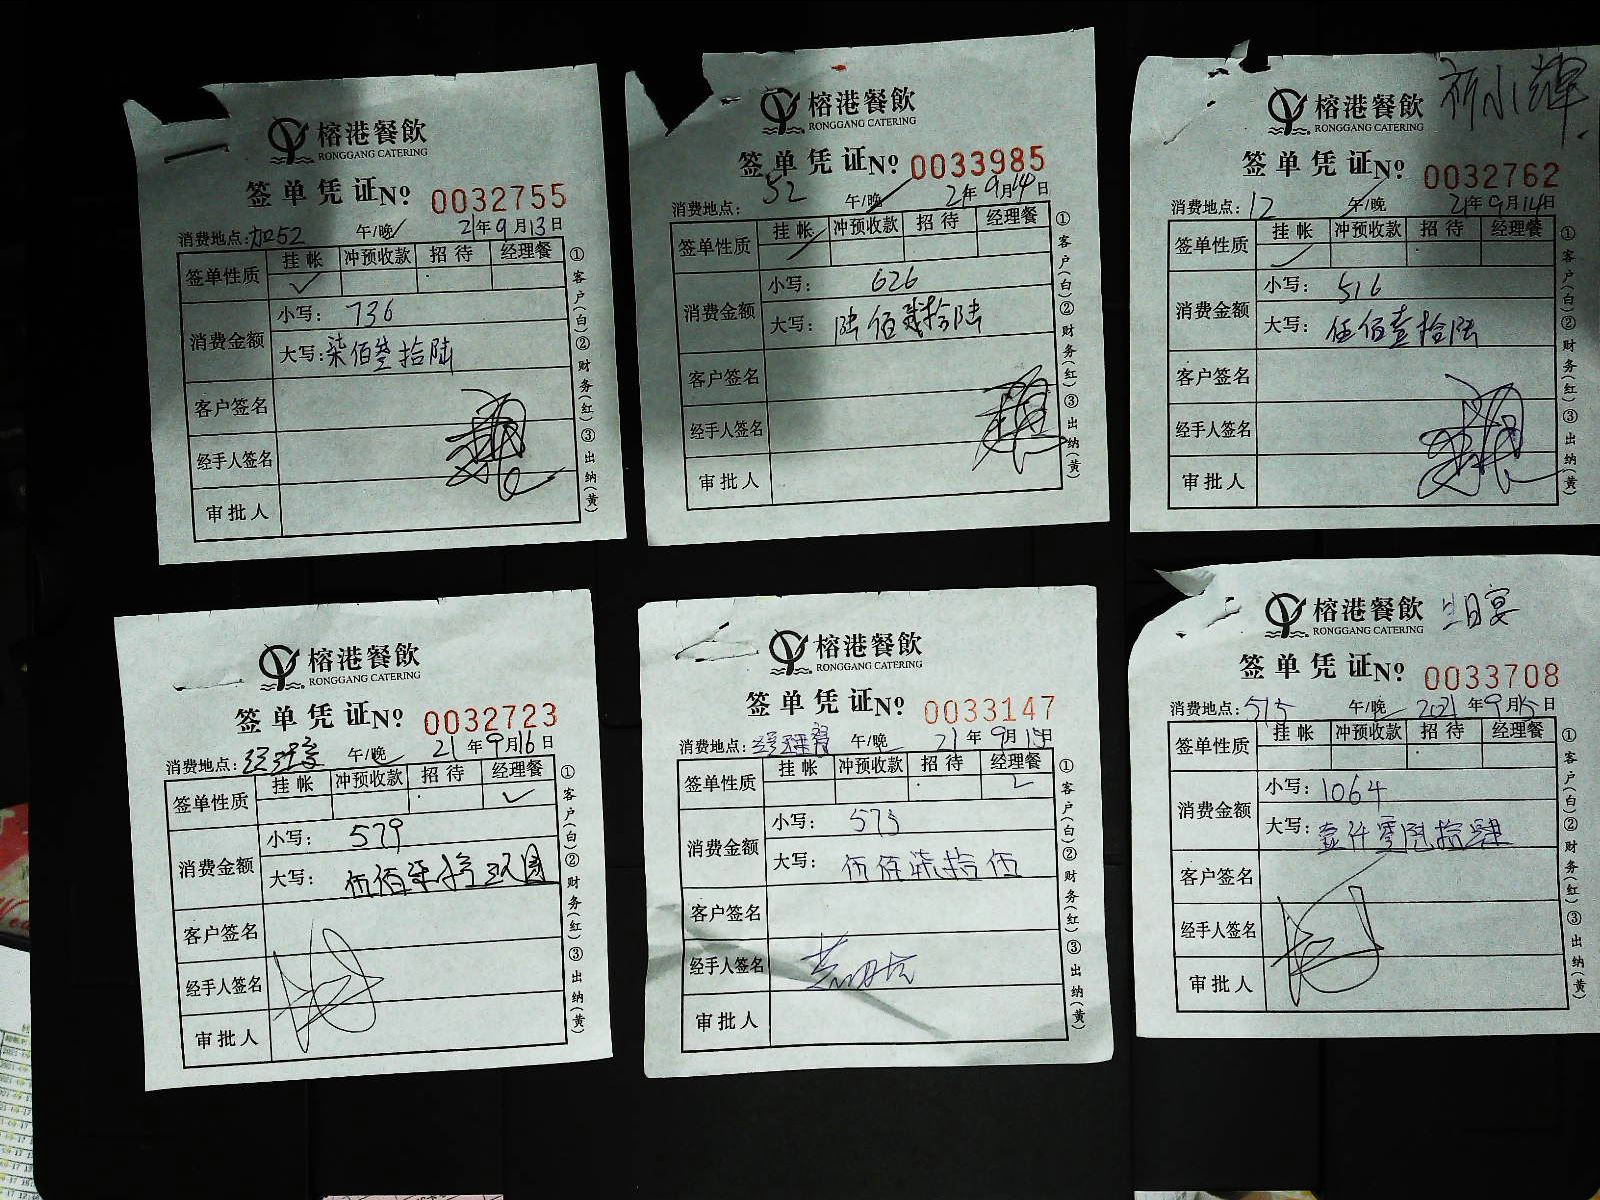 榕港餐飲
RONGGANG CATERING
签单凭证№ 0032755
消费地点：加52 午/晚 21年9月13日
签单性质 挂帐 冲预收款 招待 经理餐
消费金额 小写：736
大写：柒佰叁拾陆
客户签名
经手人签名
审批人
①客户(白)②财务(红)③出纳(黄)
榕港餐飲
RONGGANG CATERING
签单凭证№ 0033985
消费地点：52 午/晚 21年9月14日
签单性质 挂帐 冲预收款 招待 经理餐
消费金额 小写：626
大写：陆佰贰拾陆
客户签名
经手人签名
审批人
①客户(白)②财务(红)③出纳(黄)
榕港餐飲
RONGGANG CATERING
签单凭证№ 0032762
消费地点：12 午/晚 21年9月14日
签单性质 挂帐 冲预收款 招待 经理餐
消费金额 小写：516
大写：伍佰壹拾陆
客户签名
经手人签名
审批人
①客户(白)②财务(红)③出纳(黄)
榕港餐飲
RONGGANG CATERING
签单凭证№ 0032723
消费地点：经理餐 午/晚 21年9月16日
签单性质 挂帐 冲预收款 招待 经理餐
消费金额 小写：579
大写：伍佰柒拾玖圆
客户签名
经手人签名
审批人
①客户(白)②财务(红)③出纳(黄)
榕港餐飲
RONGGANG CATERING
签单凭证№ 0033147
消费地点：经理餐 午/晚 21年9月15日
签单性质 挂帐 冲预收款 招待 经理餐
消费金额 小写：575
大写：伍佰柒拾伍
客户签名
经手人签名
审批人
①客户(白)②财务(红)③出纳(黄)
榕港餐飲 生日宴
RONGGANG CATERING
签单凭证№ 0033708
消费地点：515 午/晚 2021年9月15日
签单性质 挂帐 冲预收款 招待 经理餐
消费金额 小写：1064
大写：壹仟零陆拾肆
客户签名
经手人签名
审批人
①客户(白)②财务(红)③出纳(黄)